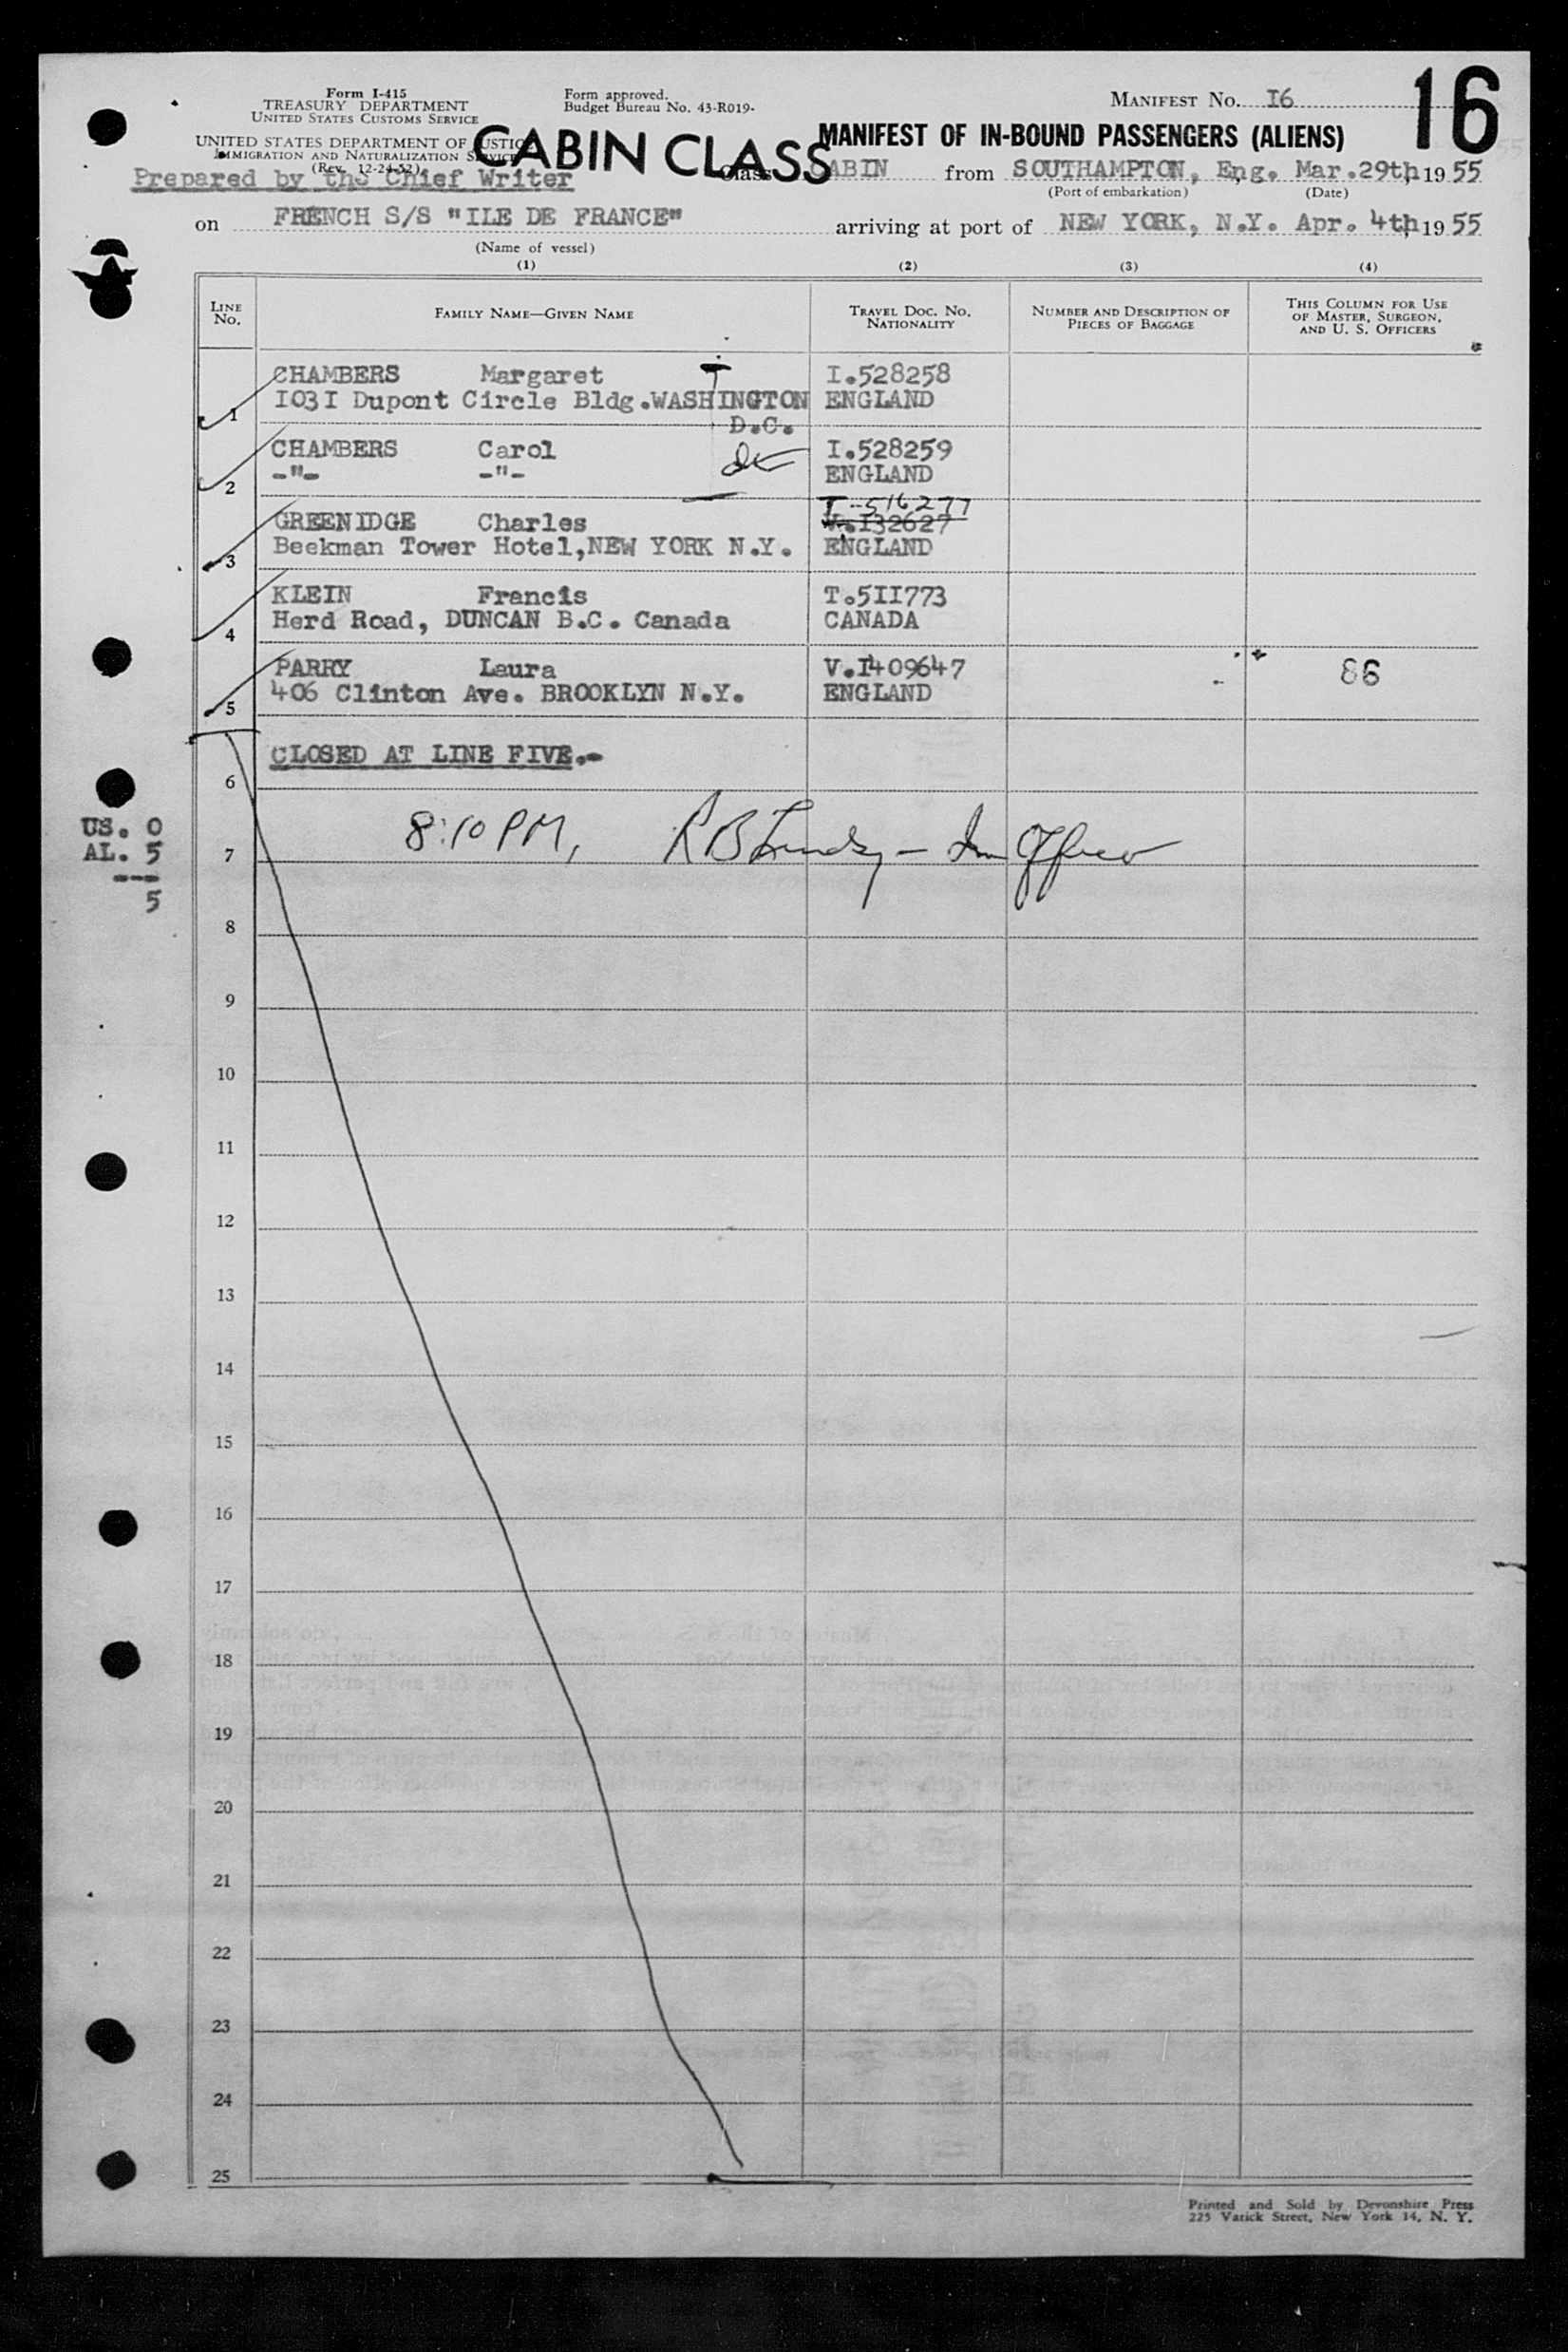 Form I-415
TREASURY DEPARTMENT
UNITED STATES CUSTOMS SERVICE
UNITED STATES DEPARTMENT OF JUSTICE
IMMIGRATION AND NATURALIZATION SERVICE
(Rev. 12-24-52)
Form approved.
Budget Bureau No. 43-R019-
MANIFEST No. I6
16
CABIN CLASS
MANIFEST OF IN-BOUND PASSENGERS (ALIENS)
Prepared by the Chief Writer
Class CABIN from SOUTHAMPTON, Eng. Mar.29th, 1955
(Port of embarkation) (Date)
on FRENCH S/S "ILE DE FRANCE" arriving at port of NEW YORK, N.Y. Apr. 4th, 1955
(Name of vessel)
(1) (2) (3) (4)
LINE No. FAMILY NAME—GIVEN NAME TRAVEL DOC. NO. NATIONALITY NUMBER AND DESCRIPTION OF PIECES OF BAGGAGE THIS COLUMN FOR USE OF MASTER, SURGEON, AND U. S. OFFICERS
CHAMBERS Margaret I.528258
1 I03I Dupont Circle Bldg.WASHINGTON ENGLAND
D.C.
CHAMBERS Carol I.528259
2 -"- -"- ENGLAND
T-516277
GREENIDGE Charles V.I32627
3 Beekman Tower Hotel,NEW YORK N.Y. ENGLAND
KLEIN Francis T.5II773
4 Herd Road, DUNCAN B.C. Canada CANADA
PARRY Laura V.I409647 86
5 406 Clinton Ave. BROOKLYN N.Y. ENGLAND
CLOSED AT LINE FIVE.-
6
US. 0
AL. 5
---
5
7 8:10 PM, R B - Im Officer
8
9
10
11
12
13
14
15
16
17
18
19
20
21
22
23
24
25
Printed and Sold by Devonshire Press
225 Varick Street, New York 14, N. Y.